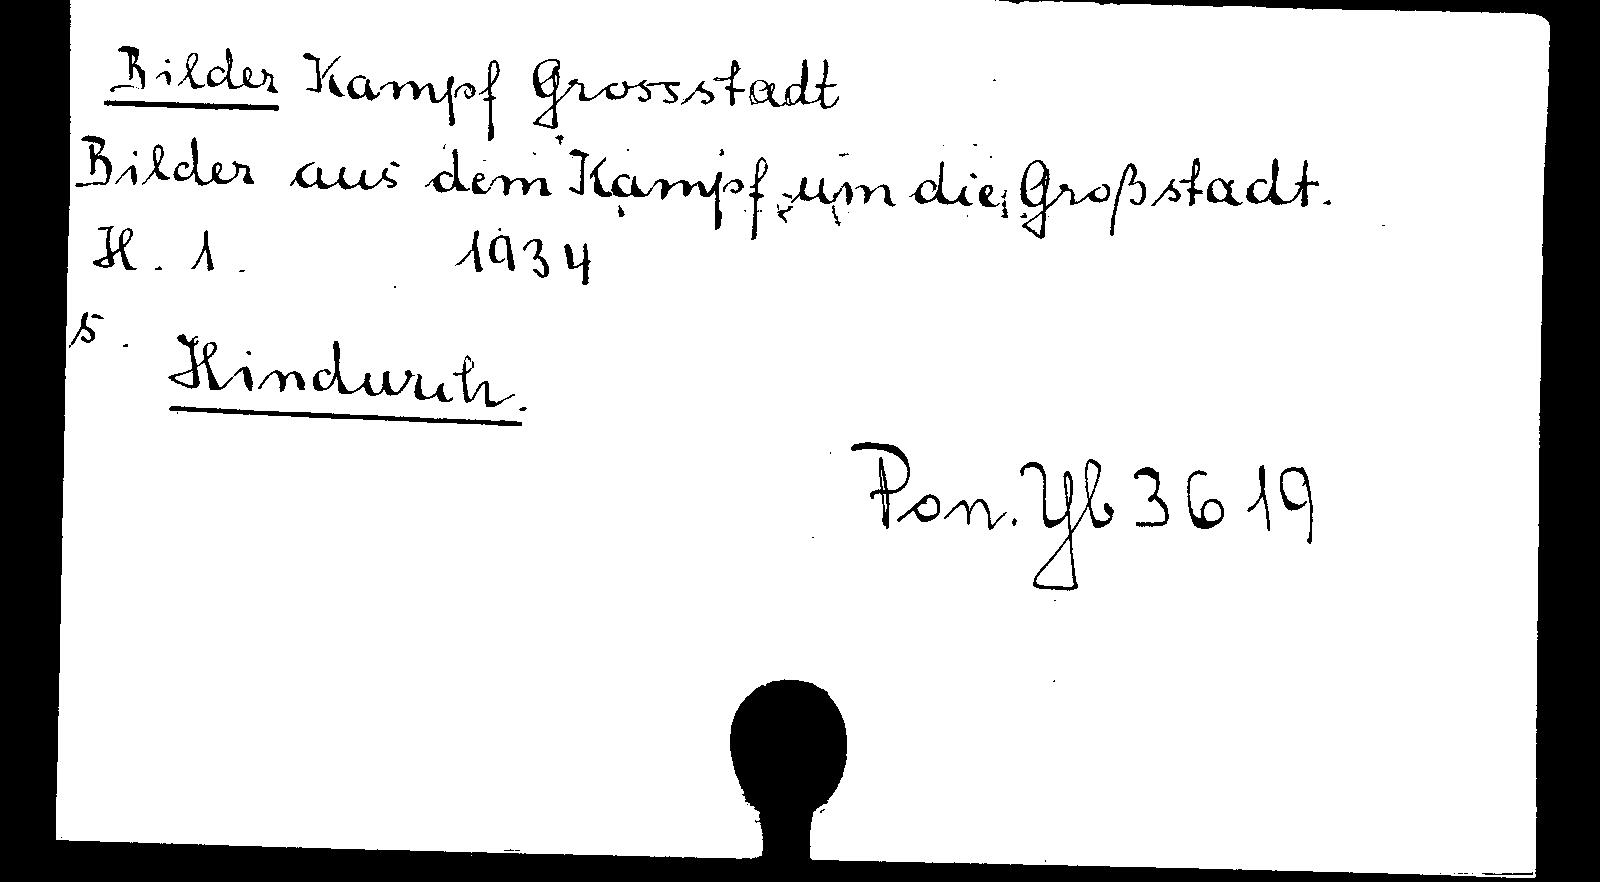 Bilder Kampf Grossstadt
Bilder aus dem Kampf um die Großstadt.
H. 1. 1934
s.
Hindurch.
Pon. Yb 3619